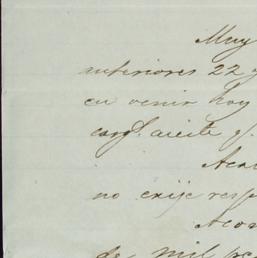 Muy
anteriores 22 y
en venir hoy
cargt. aceite q.
Aca
no exije resp
Acom
de mil pe